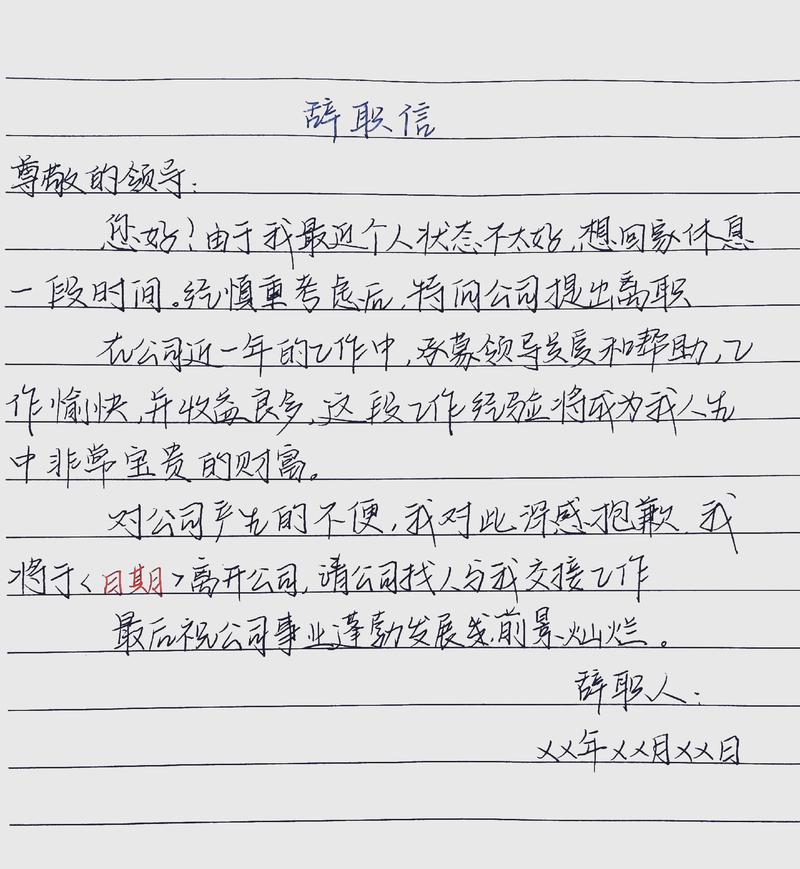 辞职信
尊敬的领导:
您好!由于我最近个人状态不太好,想回家休息
一段时间。经慎重考虑后,特向公司提出离职
在公司近一年的工作中,承蒙领导关爱和帮助,工
作愉快,并收益良多,这段工作经验将成为我人生
中非常宝贵的财富。
对公司产生的不便,我对此深感抱歉,我
将于<日期>离开公司,请公司找人与我交接工作
最后祝公司事业蓬勃发展前景灿烂。
辞职人:
XX年XX月XX日